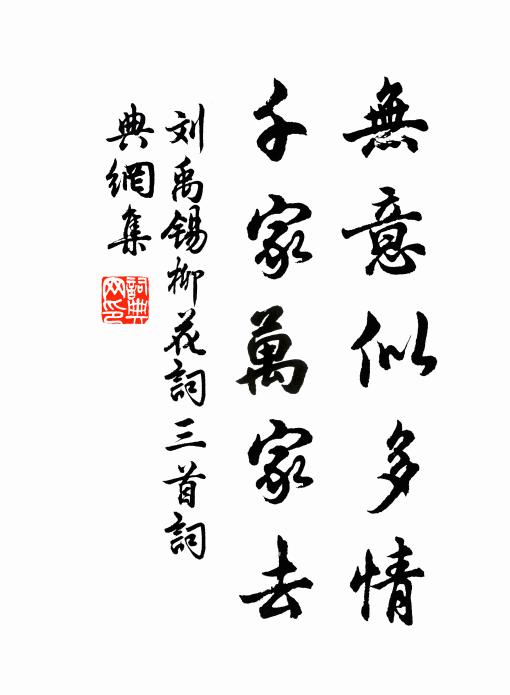 無意似多情
千家萬家去
刘禹锡柳花詞三首詞
典網集
詞典网印